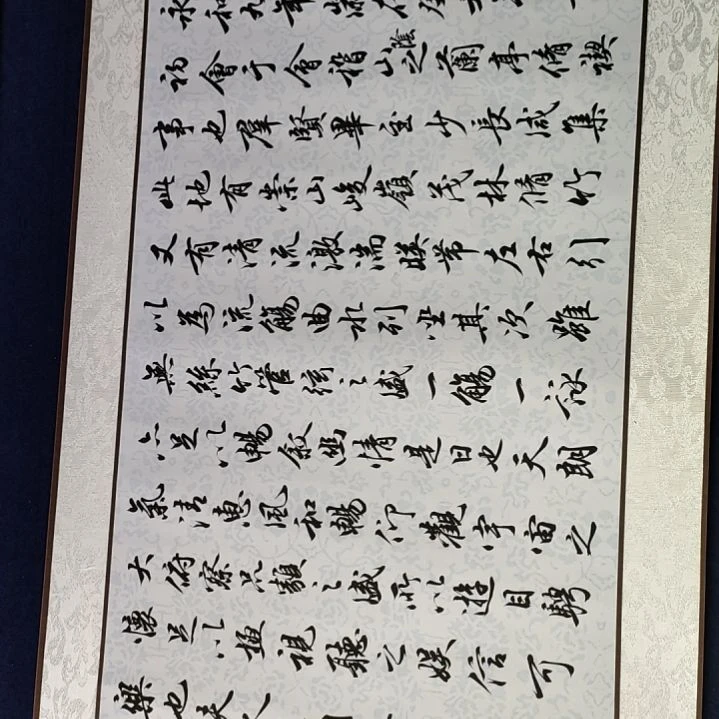 永和九年歲在
初會于會稽山陰之蘭亭脩禊
事也羣賢畢至少長咸集
此地有崇山峻嶺茂林脩竹
又有清流激湍暎帶左右引
以為流觴曲水列坐其次雖
無絲竹管弦之盛一觴一詠
亦足以暢敘幽情是日也天朗
氣清惠風和暢仰觀宇宙之
大俯察品類之盛所以遊目騁
懷足以極視聽之娛信可
樂也夫人